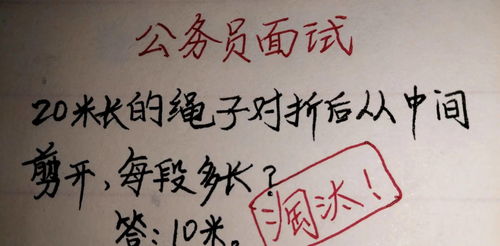 公务员面试
20米长的绳子对折后从中间
剪开,每段多长?
答:10米。
淘汰!